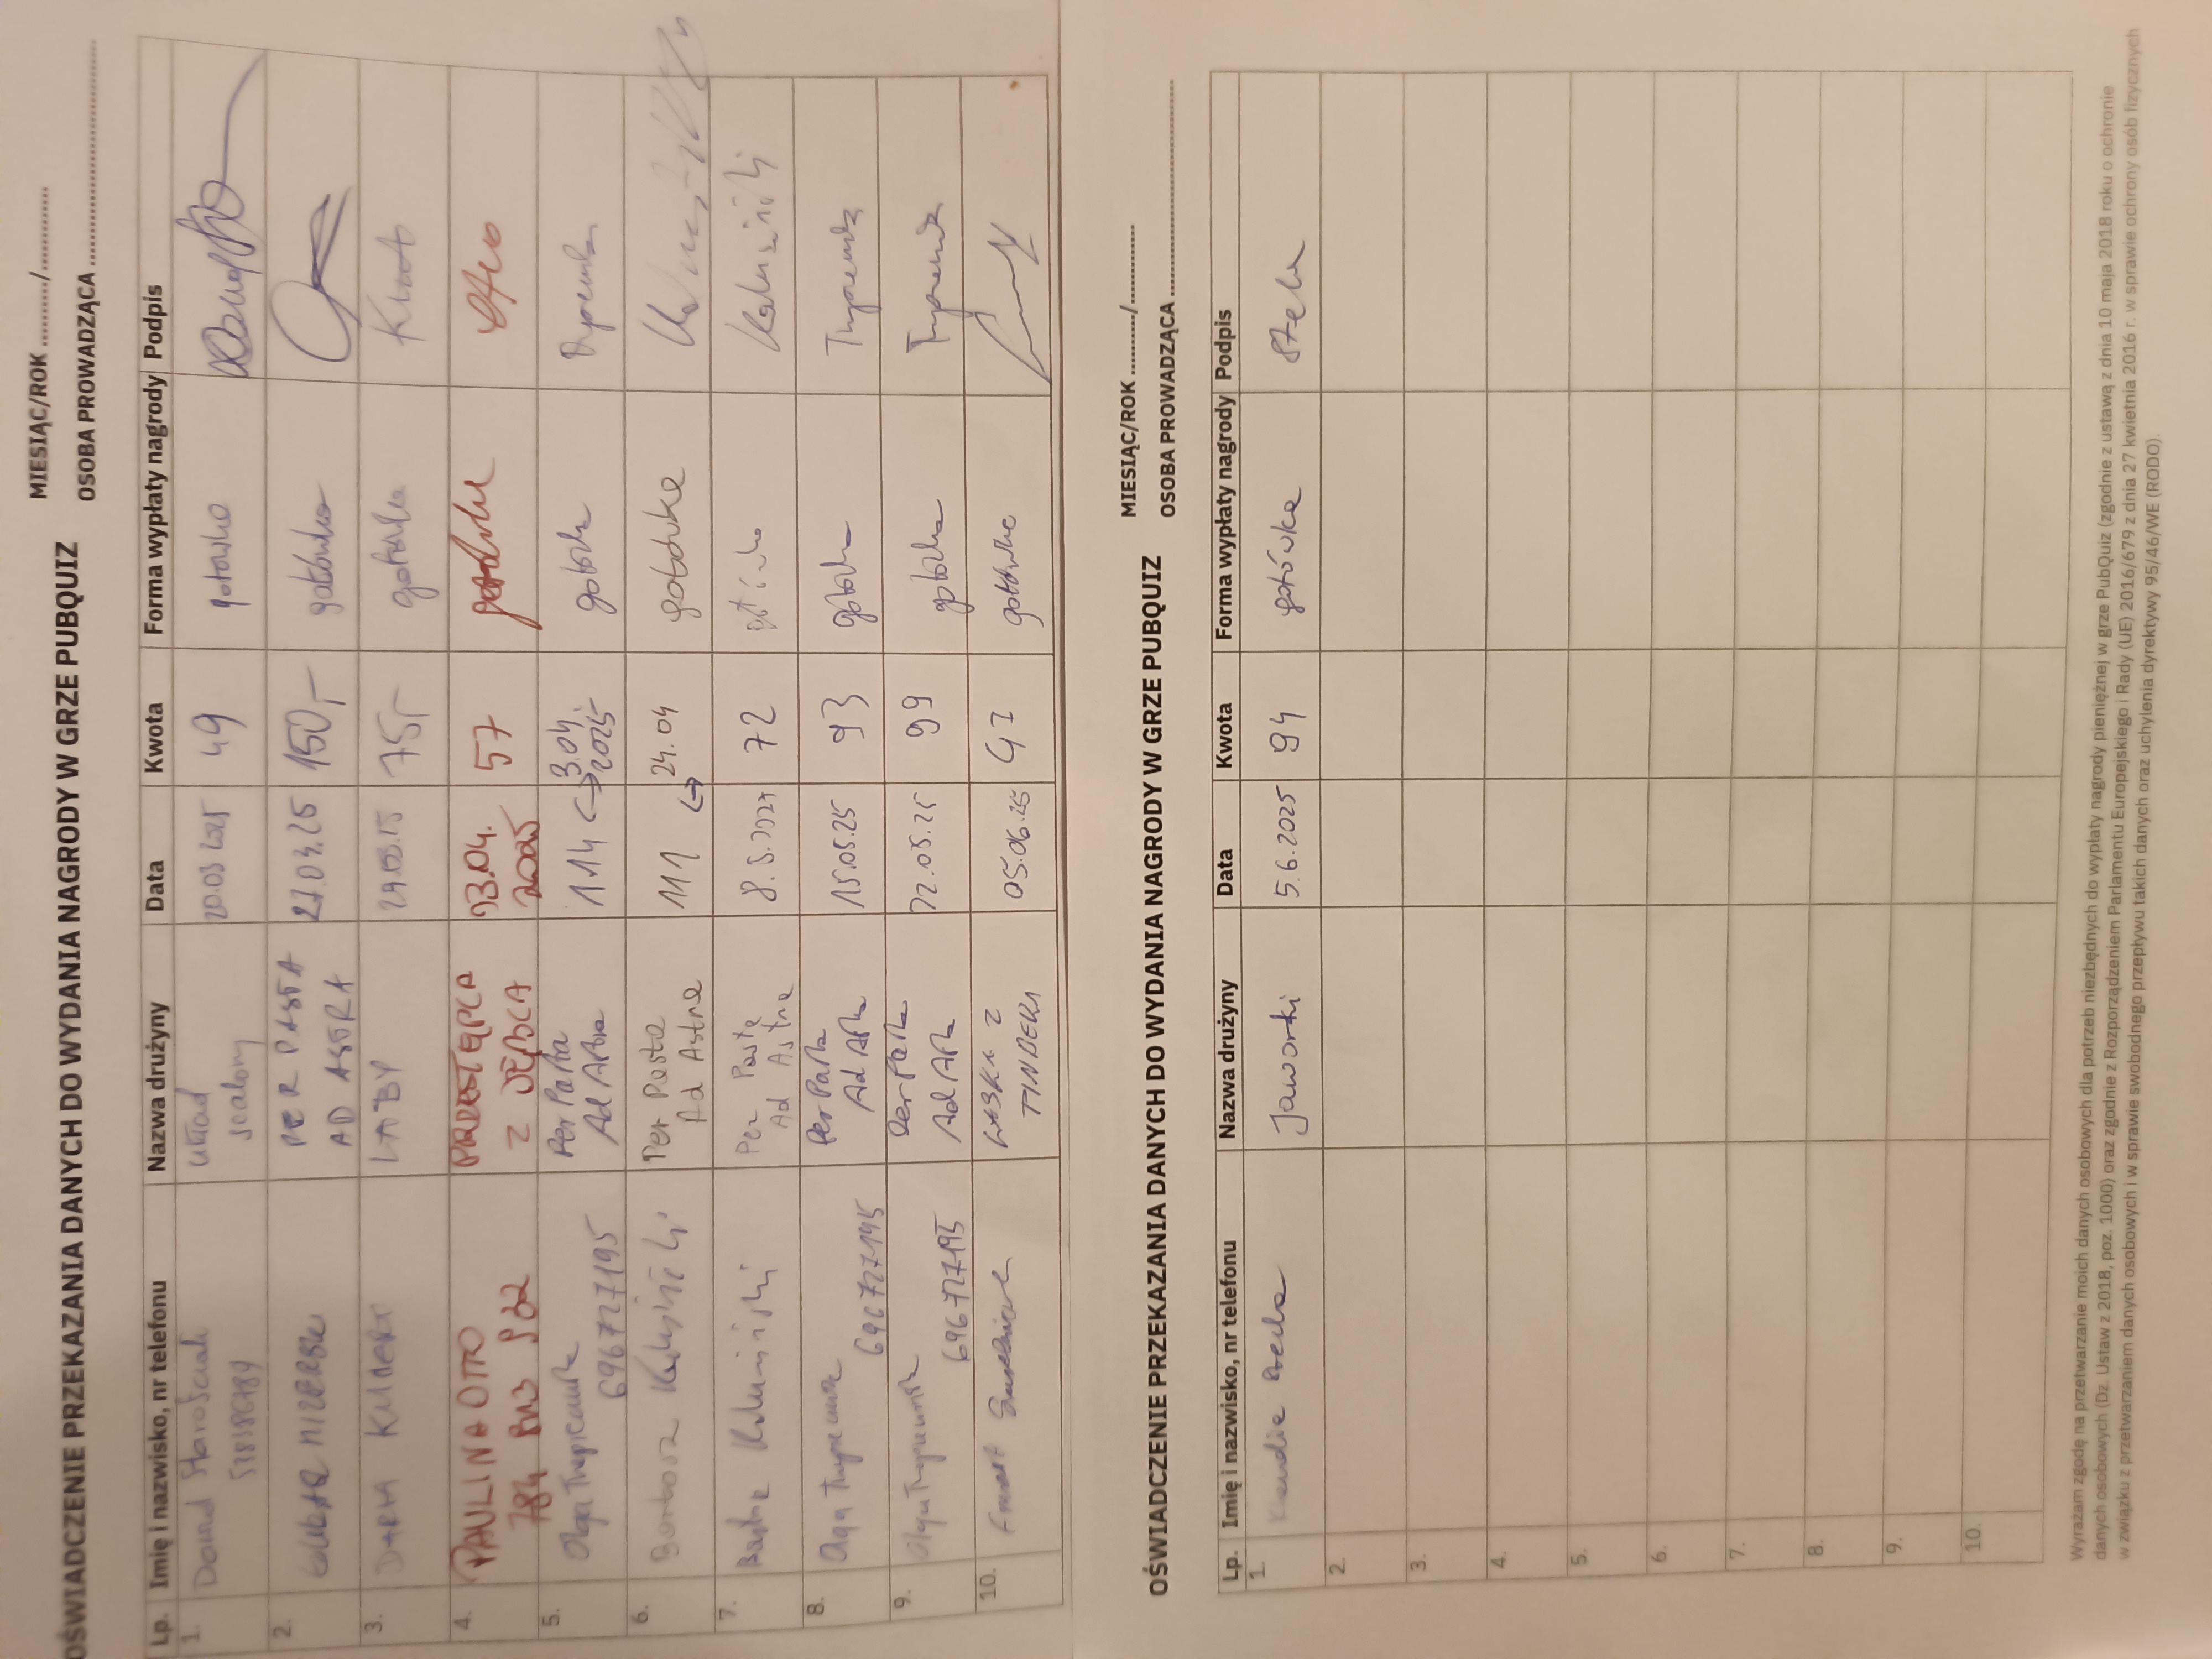 OŚWIADCZENIE PRZEKAZANIA DANYCH DO WYDANIA NAGRODY W GRZE PUBQUIZ
MIESIĄC/ROK ........../..............
OSOBA PROWADZĄCA ..............................
Lp. Imię i nazwisko, nr telefonu Nazwa drużyny Data Kwota Forma wypłaty nagrody Podpis
1. Dawid układ 20.03.2025 49 gotówka
538386789 scalony
2. PER PASTA 27.03.25 150,- gotówka
AD ASTRA
3. DARIA KUNERT ŁABY 75,-
4. PAULINA OTTO PRZESTĘPCA 03.04. 57 gotówka
784 Z 2025
5. Olga Per Pasta 114 ↔ 3.04. gotówka
696727195 Ad Astra 2025
6. Bartosz Kaliniński Per Pasta 111 ↔ 24.04 gotówka
Ad Astra
7. Per Pastę 72
Ad Astra
8. Olga Per Pasta 15.05.25 93 gotówka
696727195 Ad Astra
9. Olga Per Pasta 22.05.25 99 gotówka
696727195 Ad Astra
10. LASKI Z 05.06.25 gotówka
TINDERA
OŚWIADCZENIE PRZEKAZANIA DANYCH DO WYDANIA NAGRODY W GRZE PUBQUIZ
MIESIĄC/ROK ........../..............
OSOBA PROWADZĄCA ..............................
Lp. Imię i nazwisko, nr telefonu Nazwa drużyny Data Kwota Forma wypłaty nagrody Podpis
1. Klaudia Stecka Jaworki 5.6.2025 94 gotówka
2.
3.
4.
5.
6.
7.
8.
9.
10.
Wyrażam zgodę na przetwarzanie moich danych osobowych dla potrzeb niezbędnych do wypłaty nagrody pieniężnej w grze PubQuiz (zgodnie z ustawą z dnia 10 maja 2018 roku o ochronie
danych osobowych (Dz. Ustaw z 2018, poz. 1000) oraz zgodnie z Rozporządzeniem Parlamentu Europejskiego i Rady (UE) 2016/679 z dnia 27 kwietnia 2016 r. w sprawie ochrony osób fizycznych
w związku z przetwarzaniem danych osobowych i w sprawie swobodnego przepływu takich danych oraz uchylenia dyrektywy 95/46/WE (RODO).